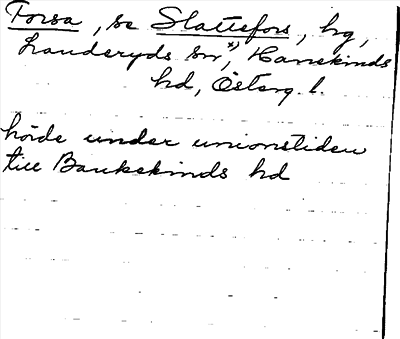 Forsa, se Slattefors, hg,
Landeryds sn*), Hanekinds
hd, Österg. l.
hörde under unionstiden
till Bankekinds hd